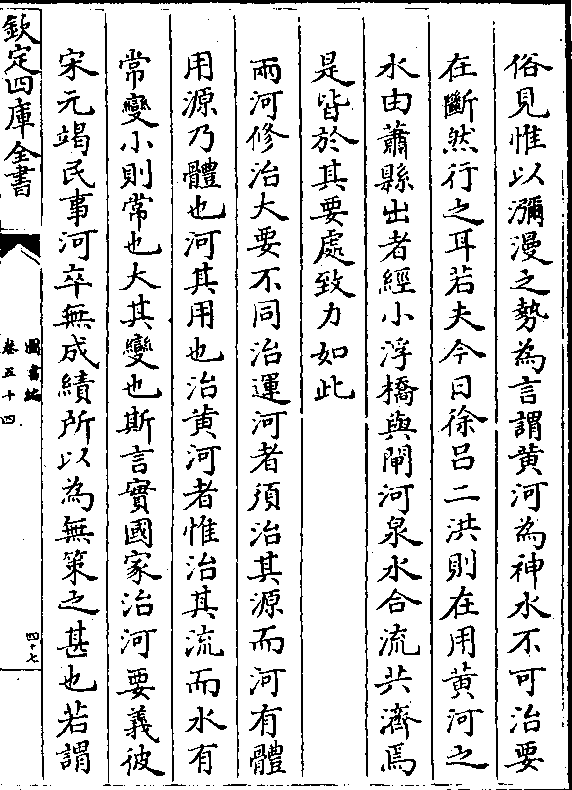 俗見惟以瀰漫之勢為言謂黄河為神水不可治要
在斷然行之耳若夫今日徐吕二洪則在用黄河之
水由蕭縣出者經小浮橋與閘河泉水合流共濟焉
是皆於其要處致力如此
兩河修治大要不同治運河者須治其源而河有體
用源乃體也河其用也治黄河者惟治其流而水有
常變小則常也大其變也斯言實國家治河要義彼
宋元竭民事河卒無成績所以為無策之甚也若謂
欽定四庫全書
圖書編
卷五十四
四十七